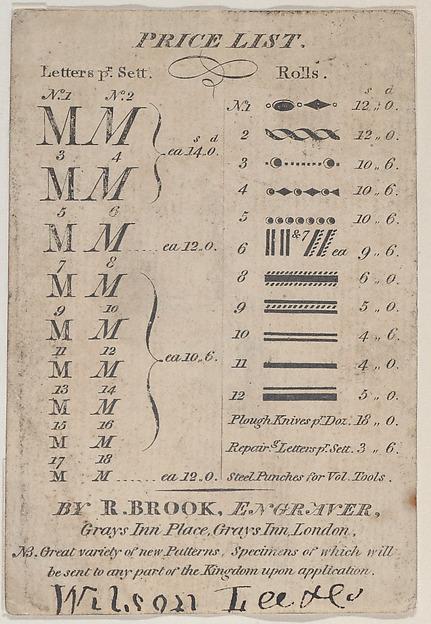 PRICE LIST.
Letters pr. Sett.
No. 1 No. 2
M M
3 4
M M
s d
ea 14.. 0.
5 6
M M ea 12.. 0.
7 8
M M
9 10
M M
11 12
M M
13 14
M M
15 16
M M
ea 10.. 6.
17 18
M M ea 12.. 0.
Rolls.
s d
No. 1 12 „ 0.
2 12 „ 0.
3 10 „ 6.
4 10 „ 6.
5 10 „ 6.
6 & 7 ea 9 „ 6.
8 6 „ 0.
9 5 „ 0.
10 4 „ 6.
11 4 „ 0.
12 5 „ 0.
Plough Knives pr. Doz: 18 „ 0.
Repairg. Letters pr. Sett. 3 „ 6.
Steel Punches for Vol. Tools.
BY R. BROOK, ENGRAVER,
Grays Inn Place, Grays Inn, London.
NB. Great variety of new Patterns, Specimens of which will
be sent to any part of the Kingdom upon application.
Wilson